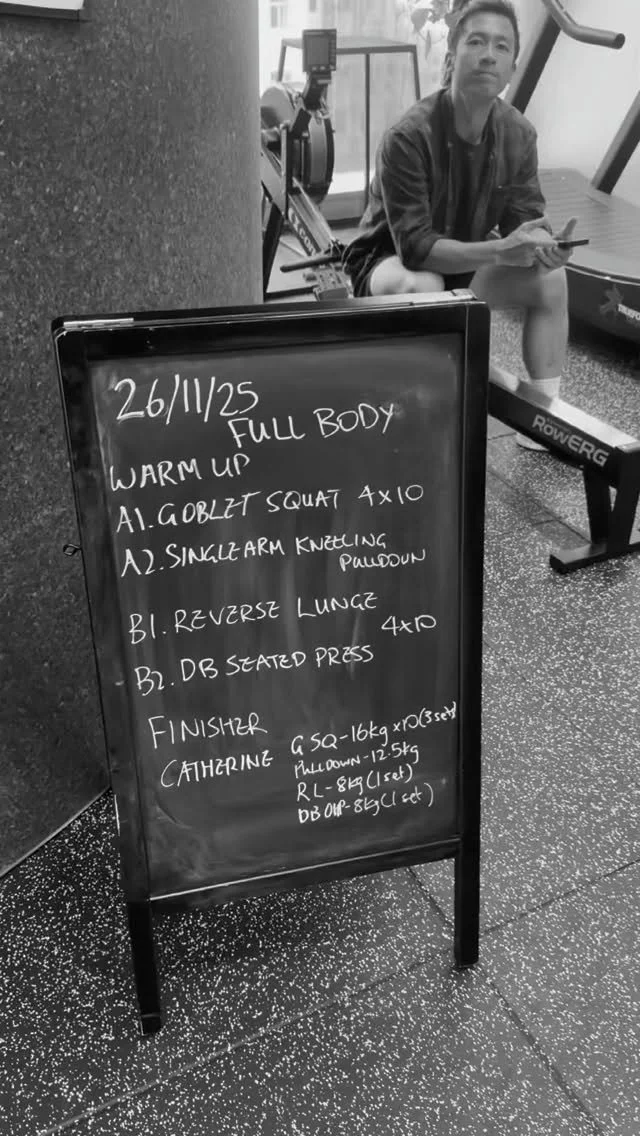 26/11/25
FULL BODY
WARM UP
A1. GOBLET SQUAT 4x10
A2. SINGLE ARM KNEELING
PULLDOWN
B1. REVERSE LUNGE
4x10
B2. DB SEATED PRESS
FINISHER
CATHERINE
G SQ-16kg x10(3 sets)
PULLDOWN-12.5kg
RL-8kg(1 set)
DB OHP-8kg(1 set)
ROWERG